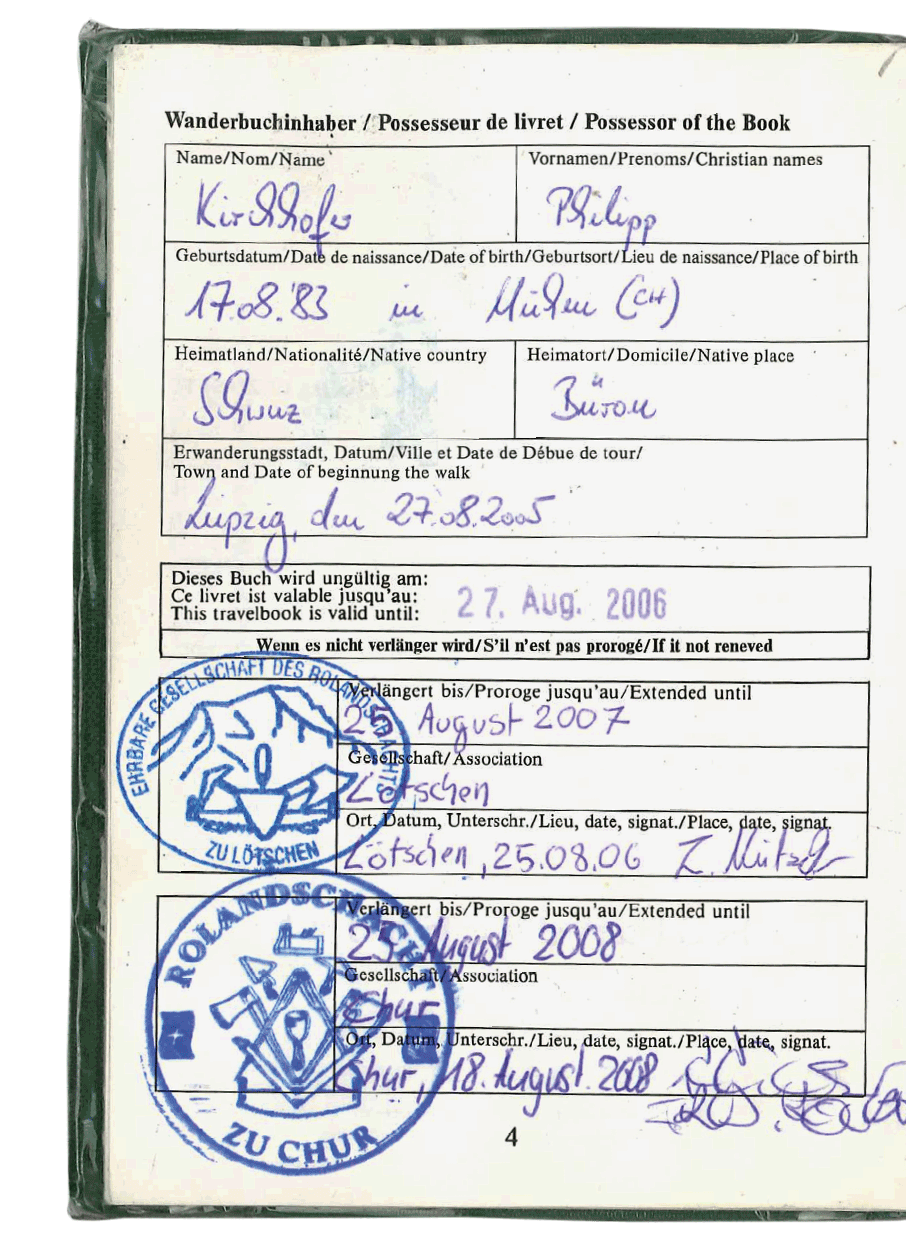 Wanderbuchinhaber / Possesseur de livret / Possessor of the Book
Name/Nom/Name
Vornamen/Prenoms/Christian names
Kirchhofer
Philipp
Geburtsdatum/Date de naissance/Date of birth/Geburtsort/Lieu de naissance/Place of birth
17.08.'83 in (CH)
Heimatland/Nationalité/Native country
Heimatort/Domicile/Native place
Schweiz
Büron
Erwanderungsstadt, Datum/Ville et Date de Débue de tour/
Town and Date of beginnung the walk
Leipzig, den 27.08.2005
Dieses Buch wird ungültig am:
Ce livret est valable jusqu'au:
This travelbook is valid until:
27. Aug. 2006
Wenn es nicht verlänger wird/S'il n'est pas prorogé/If it not reneved
EHRBARE GESELLSCHAFT DES ROLANDSCHACHTES
ZU LÖTSCHEN
Verlängert bis/Proroge jusqu'au/Extended until
25 August 2007
Gesellschaft/Association
Lötschen
Ort, Datum, Unterschr./Lieu, date, signat./Place, date, signat.
Lötschen, 25.08.06
ROLANDSCHACHT
ZU CHUR
Verlängert bis/Proroge jusqu'au/Extended until
25 August 2008
Gesellschaft/Association
Chur
Ort, Datum, Unterschr./Lieu, date, signat./Place, date, signat.
Chur, 18. August. 2008
4